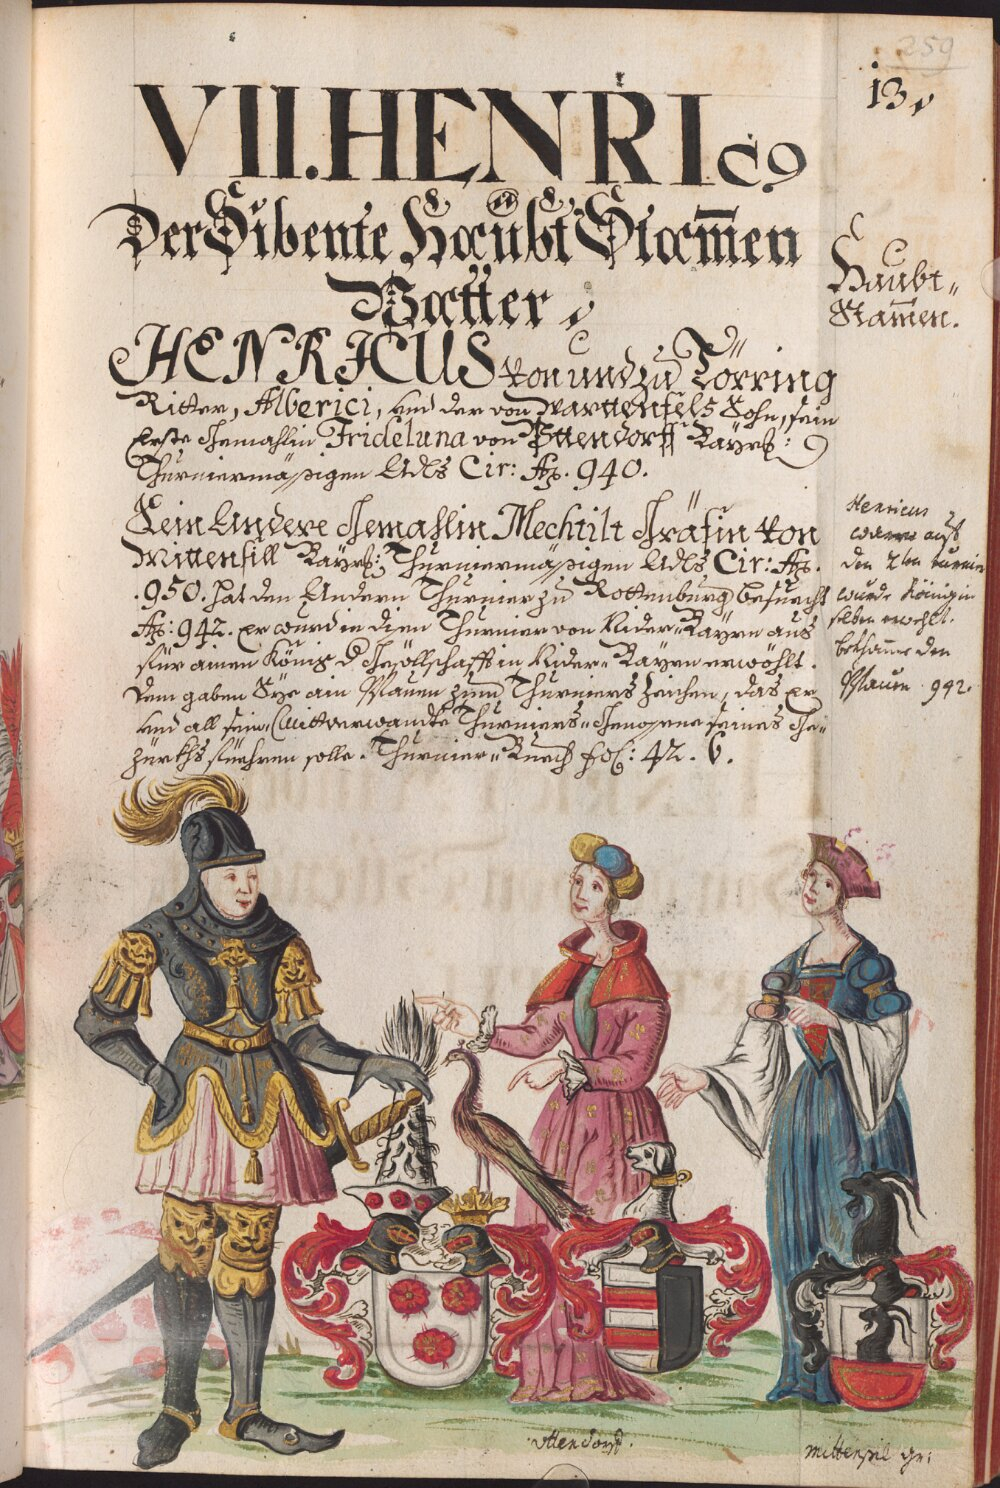 259
13
VII. HENRIC9
Der Sibente Haubt Stammen
Vatter
Haubt-
Stammen.
HENRICUS von und zu Törring
Ritter, Alberici, und der von Warttenfels Sohn, sein
Erste Gemahlin Frideluna von Uttendorff Bayrs:
Thurniermässigen Adls Cir: Aõ. 940.
Sein Andere Gemahlin Mechtilt Gräfin von
Mittersill Bayrs: Thurniermässigen Adls Cir: Aõ.
.950. hat den Andern Thurnier zu Rottenburg besuecht
Aõ: 942. Er wurd in disen Thurnier von Nider-Bayrn aus
für ainen König d Gesöllschafft in Nider-Bayrn erwöhlt.
dem gaben Sye ain Pfauen zum Thurniers Zeichen, das Er
und all seine Mitverwandte Thurniers-Genossene seines Ge-
zürkhs fuehren solle. Thurnier-Buech fol: 42. b.
Henricus
ware auf
den 2ten turnier
wurde König in
selben erwehlt.
bekhame den
Pfauen 942.
Uttendorf.
Mittersil gr: